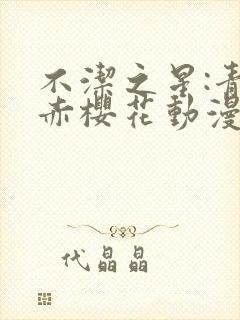 不潔之星:青
赤櫻花動漫
代晶晶